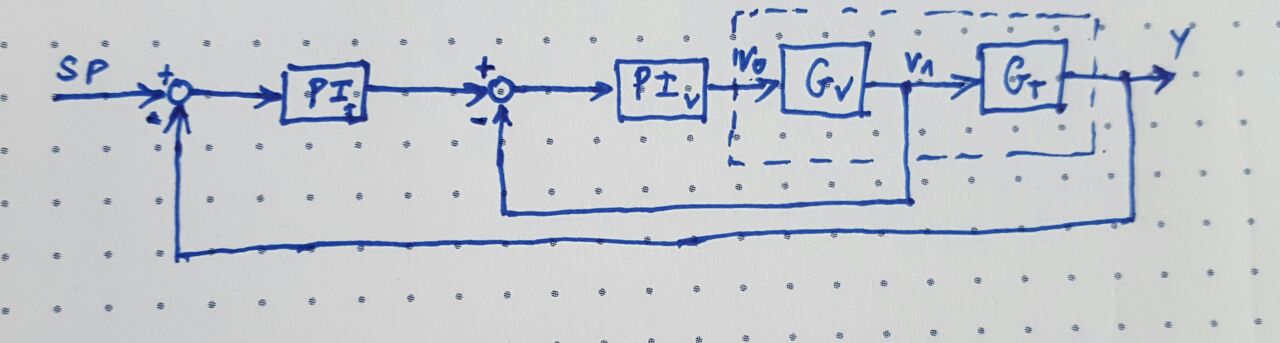 SP + - PI + - PIv v0 Gv v1 GT Y